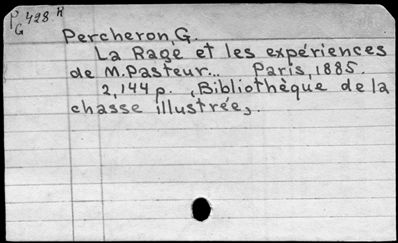 P 428 R
G
Percheron, G.
La Rage et les expériences
de M. Pasteur... Paris, 1885.
2, 144 p. (Bibliothèque de la
chasse illustrée).